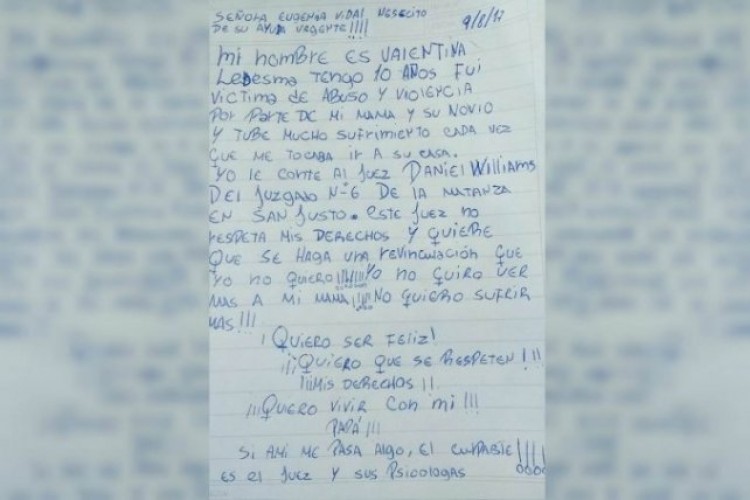 SEÑORA EUGENIA VIDAL NESECITO
DE SU AYUDA URGENTE!!!!
9/8/17
Mi NOMBRE ES VALENTINA
LEDESMA TENGO 10 AÑOS FUI
VICTIMA DE ABUSO Y VIOLENCIA
POR PARTE DE MI MAMA Y SU NOVIO
Y TUBE MUCHO SUFRIMIENTO CADA VEZ
QUE ME TOCABA IR A SU CASA.
YO LE CONTE AL JUEZ DANIEL WILLIAMS
DEL JUZGADO Nº6 DE LA MATANZA
EN SAN JUSTO. ESTE JUEZ NO
RESPETA MIS DERECHOS Y QUIERE
QUE SE HAGA UNA REVINCULACIÓN QUE
YO NO QUIERO!!!!!! YO NO QUIRO VER
MAS A MI MAMA!!!! NO QUIERO SUFRIR
MAS!!!
¡QUIERO SER FELIZ!
¡¡¡QUIERO QUE SE RESPETEN!!!
¡¡¡MIS DERECHOS!!
¡¡¡QUERO VIVIR CON MI!!!
PAPÁ!!!
SI AMI ME PASA ALGO, EL CULPABLE!!!!
ES EL JUEZ Y SUS PSICOLOGAS